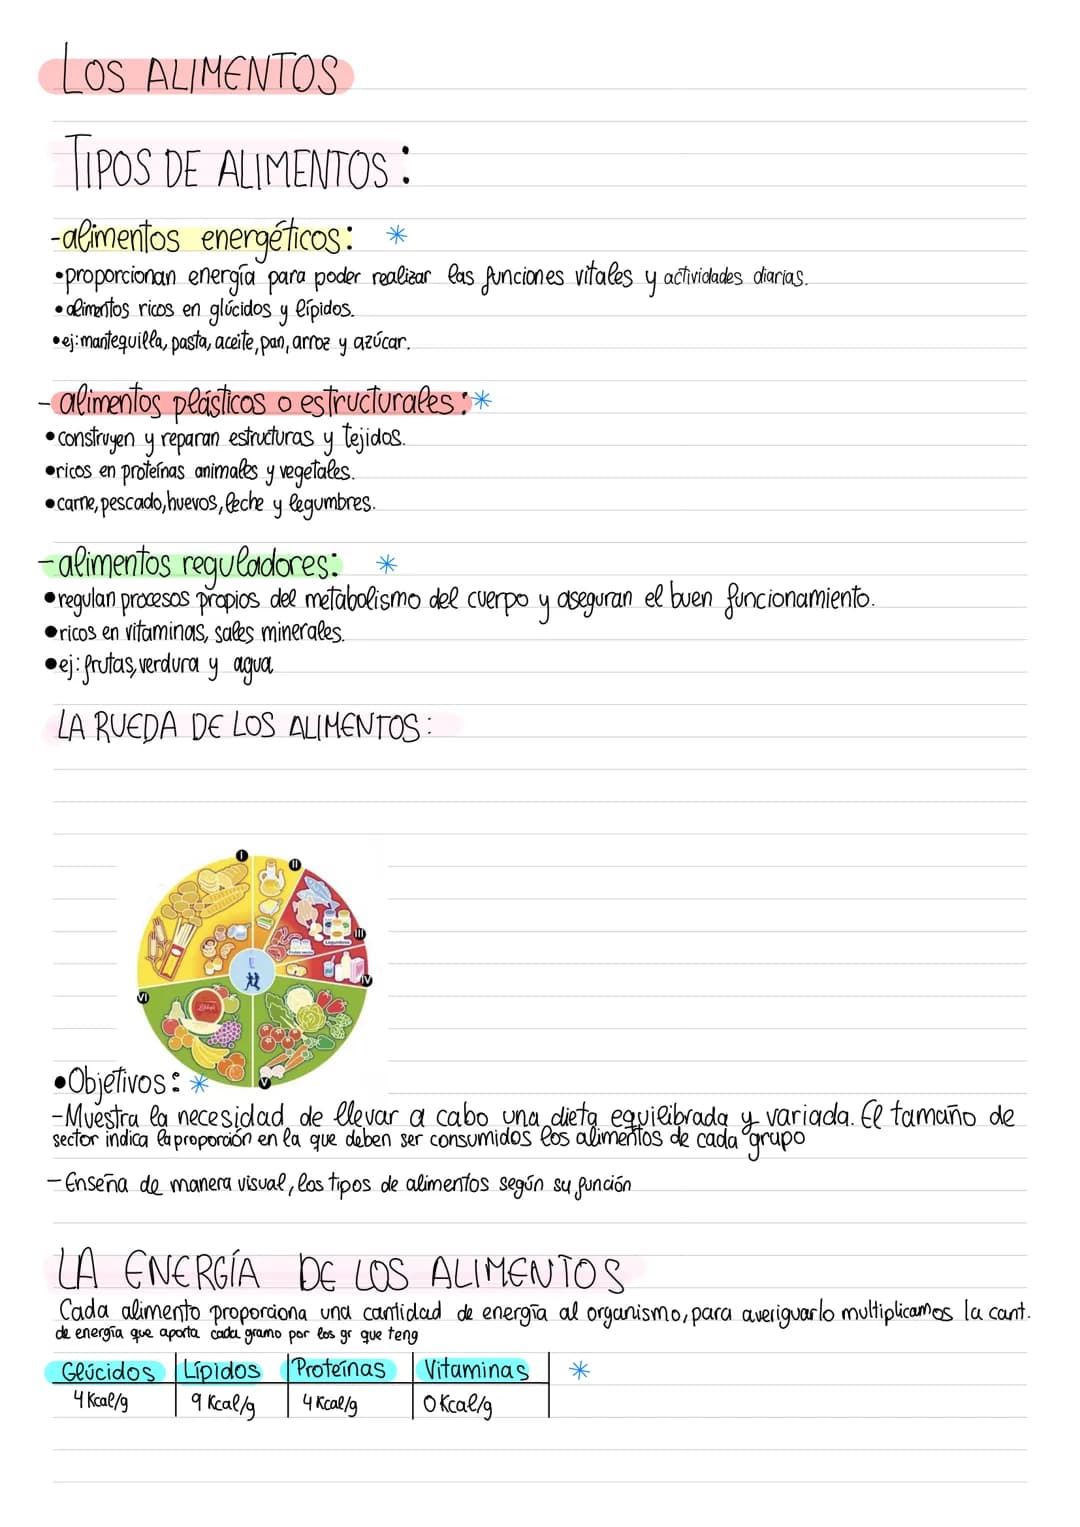 LOS ALIMENTOS
TIPOS DE ALIMENTOS:
-alimentos energéticos: *
•proporcionan energía para poder realizar las funciones vitales y actividades diarias.
•alimentos ricos en glúcidos y lípidos.
•ej:mantequilla, pasta, aceite, pan, arroz y azúcar.
-alimentos plásticos o estructurales:*
•construyen y reparan estructuras y tejidos.
•ricos en proteínas animales y vegetales.
•carne, pescado, huevos, leche y legumbres.
-alimentos reguladores: *
•regulan procesos propios del metabolismo del cuerpo y aseguran el buen funcionamiento.
•ricos en vitaminas, sales minerales.
•ej: frutas, verdura y agua
LA RUEDA DE LOS ALIMENTOS:
I
II
III
Legumbres
IV
VI
V
•Objetivos: *
-Muestra la necesidad de llevar a cabo una dieta equilibrada y variada. El tamaño de
sector indica la proporción en la que deben ser consumidos los alimentos de cada grupo
-Enseña de manera visual, los tipos de alimentos según su función
LA ENERGÍA DE LOS ALIMENTOS
Cada alimento proporciona una cantidad de energía al organismo, para averiguarlo multiplicamos la cant.
de energía que aporta cada gramo por los gr que teng
Glúcidos Lípidos Proteínas Vitaminas *
4 Kcal/g 9 Kcal/g 4 Kcal/g 0 Kcal/g